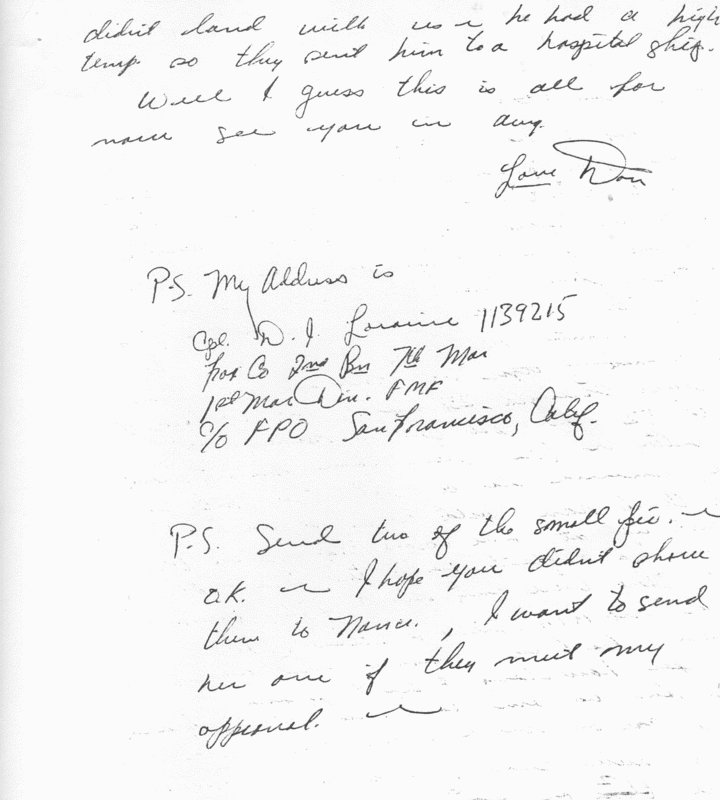 didn't land with us he had a high
temp so they sent him to a hospital ship.
Well I guess this is all for
now see you in Aug.
Love Don
P.S. My Address is
Cpl. D. J. Loraine 1139215
Fox Co 2nd Bn 7th Mar
1st Mar Div. FMF
c/o FPO San Francisco, Calif.
P.S. Send two of the small pic.
O.K. I hope you didn't show
them to , I want to send
her one if they meet my